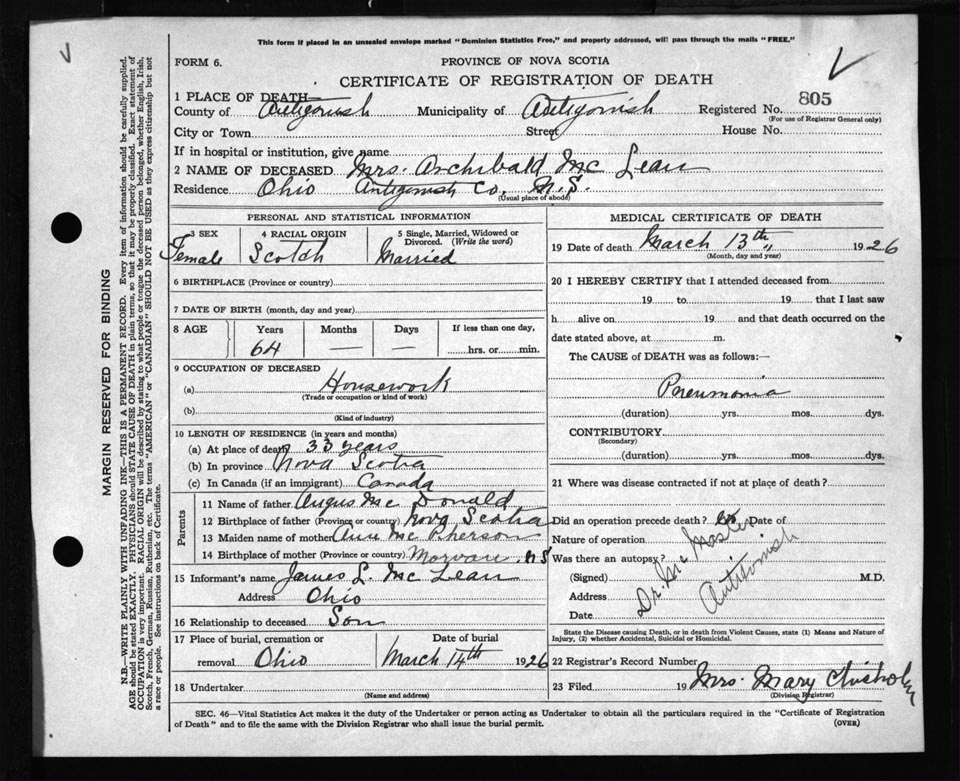 This form if placed in an unsealed envelope marked "Dominion Statistics Free," and properly addressed, will pass through the mails "FREE."
FORM 6.
PROVINCE OF NOVA SCOTIA
CERTIFICATE OF REGISTRATION OF DEATH
1 PLACE OF DEATH
County of Antigonish Municipality of Antigonish Registered No. 805
(For use of Registrar General only)
City or Town Street House No.
If in hospital or institution, give name
2 NAME OF DECEASED Mrs. Archibald Mc Lean
Residence Ohio Antigonish Co. N.S.
(Usual place of abode)
PERSONAL AND STATISTICAL INFORMATION
3 SEX Female
4 RACIAL ORIGIN Scotch
5 Single, Married, Widowed or Divorced. (Write the word) Married
6 BIRTHPLACE (Province or country)
7 DATE OF BIRTH (month, day and year)
8 AGE Years Months Days If less than one day,
64 — — hrs. or min.
9 OCCUPATION OF DECEASED
(a) Housework
(Trade or occupation or kind of work)
(b)
(Kind of industry)
10 LENGTH OF RESIDENCE (in years and months)
(a) At place of death 33 years
(b) In province Nova Scotia
(c) In Canada (if an immigrant) Canada
Parents
11 Name of father Angus Mc Donald
12 Birthplace of father (Province or country) Nova Scotia
13 Maiden name of mother Ann Mc Pherson
14 Birthplace of mother (Province or country) Morvan, N S
15 Informant's name James L. Mc Lean
Address Ohio
16 Relationship to deceased Son
17 Place of burial, cremation or removal Ohio
Date of burial March 14th 1926
18 Undertaker
(Name and address)
MEDICAL CERTIFICATE OF DEATH
19 Date of death March 13th, 1926
(Month, day and year)
20 I HEREBY CERTIFY that I attended deceased from
19 to 19 that I last saw
h alive on 19 and that death occurred on the
date stated above, at m.
The CAUSE of DEATH was as follows:—
Pneumonia
(duration) yrs. mos. dys.
CONTRIBUTORY
(Secondary)
(duration) yrs. mos. dys.
21 Where was disease contracted if not at place of death?
Did an operation precede death? Date of
Nature of operation
Was there an autopsy?
(Signed) Dr. Mc Master M.D.
Address Antigonish
Date
State the Disease causing Death, or in death from Violent Causes, state (1) Means and Nature of
Injury, (2) whether Accidental, Suicidal or Homicidal.
22 Registrar's Record Number
23 Filed 19 Mrs. Mary Chisholm
(Division Registrar)
SEC. 46—Vital Statistics Act makes it the duty of the Undertaker or person acting as Undertaker to obtain all the particulars required in the "Certificate of Registration
of Death" and to file the same with the Division Registrar who shall issue the burial permit.
(OVER)
MARGIN RESERVED FOR BINDING
N.B.—WRITE PLAINLY WITH UNFADING INK—THIS IS A PERMANENT RECORD. Every item of information should be carefully supplied.
AGE should be stated EXACTLY. PHYSICIANS should STATE CAUSE OF DEATH in plain terms, so that it may be properly classified. Exact statement of
OCCUPATION is very important. RACIAL ORIGIN will be described by stating to what people or tongue the deceased person belonged, whether English, Irish,
Scotch, French, German, Russian, Ruthenian, etc. The terms "AMERICAN" or "CANADIAN" SHOULD NOT BE USED as they express citizenship but not
a race or people. See instructions on back of Certificate.